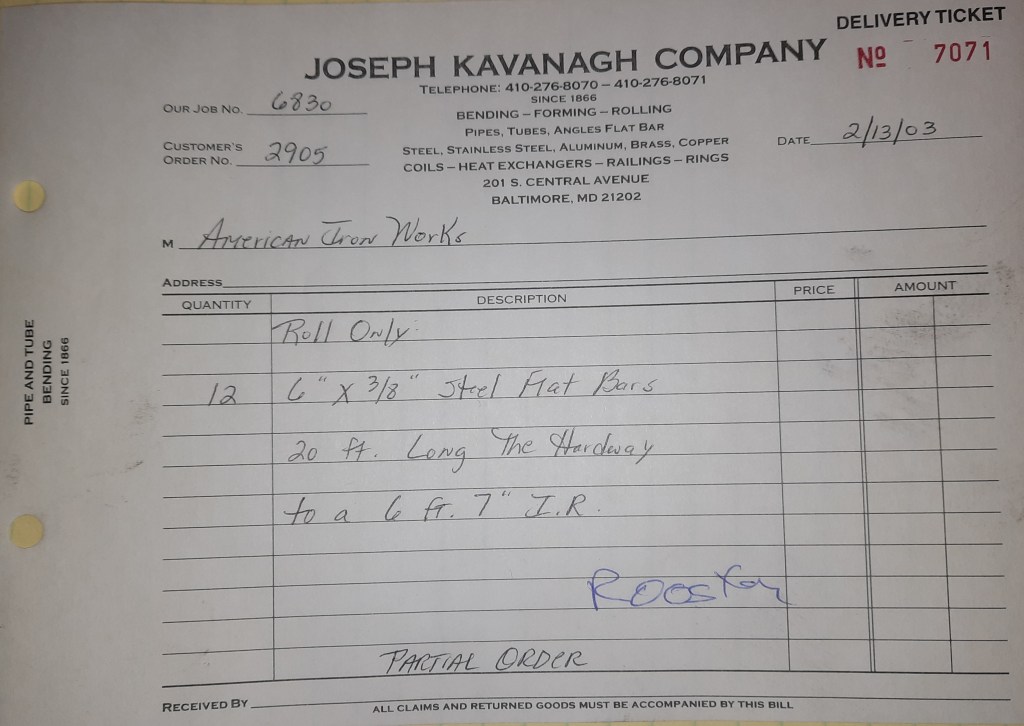 DELIVERY TICKET
JOSEPH KAVANAGH COMPANY
Nº 7071
TELEPHONE: 410-276-8070 – 410-276-8071
SINCE 1866
OUR JOB NO. 6830
BENDING – FORMING – ROLLING
PIPES, TUBES, ANGLES FLAT BAR
CUSTOMER'S ORDER NO. 2905
STEEL, STAINLESS STEEL, ALUMINUM, BRASS, COPPER
DATE 2/13/03
COILS – HEAT EXCHANGERS – RAILINGS – RINGS
201 S. CENTRAL AVENUE
BALTIMORE, MD 21202
M American Iron Works
ADDRESS
QUANTITY DESCRIPTION PRICE AMOUNT
Roll Only:
12 6" X 3/8" Steel Flat Bars
20 ft. Long The Hardway
to a 6 ft. 7" I.R.
Rooster
PARTIAL ORDER
RECEIVED BY
ALL CLAIMS AND RETURNED GOODS MUST BE ACCOMPANIED BY THIS BILL
PIPE AND TUBE
BENDING
SINCE 1866